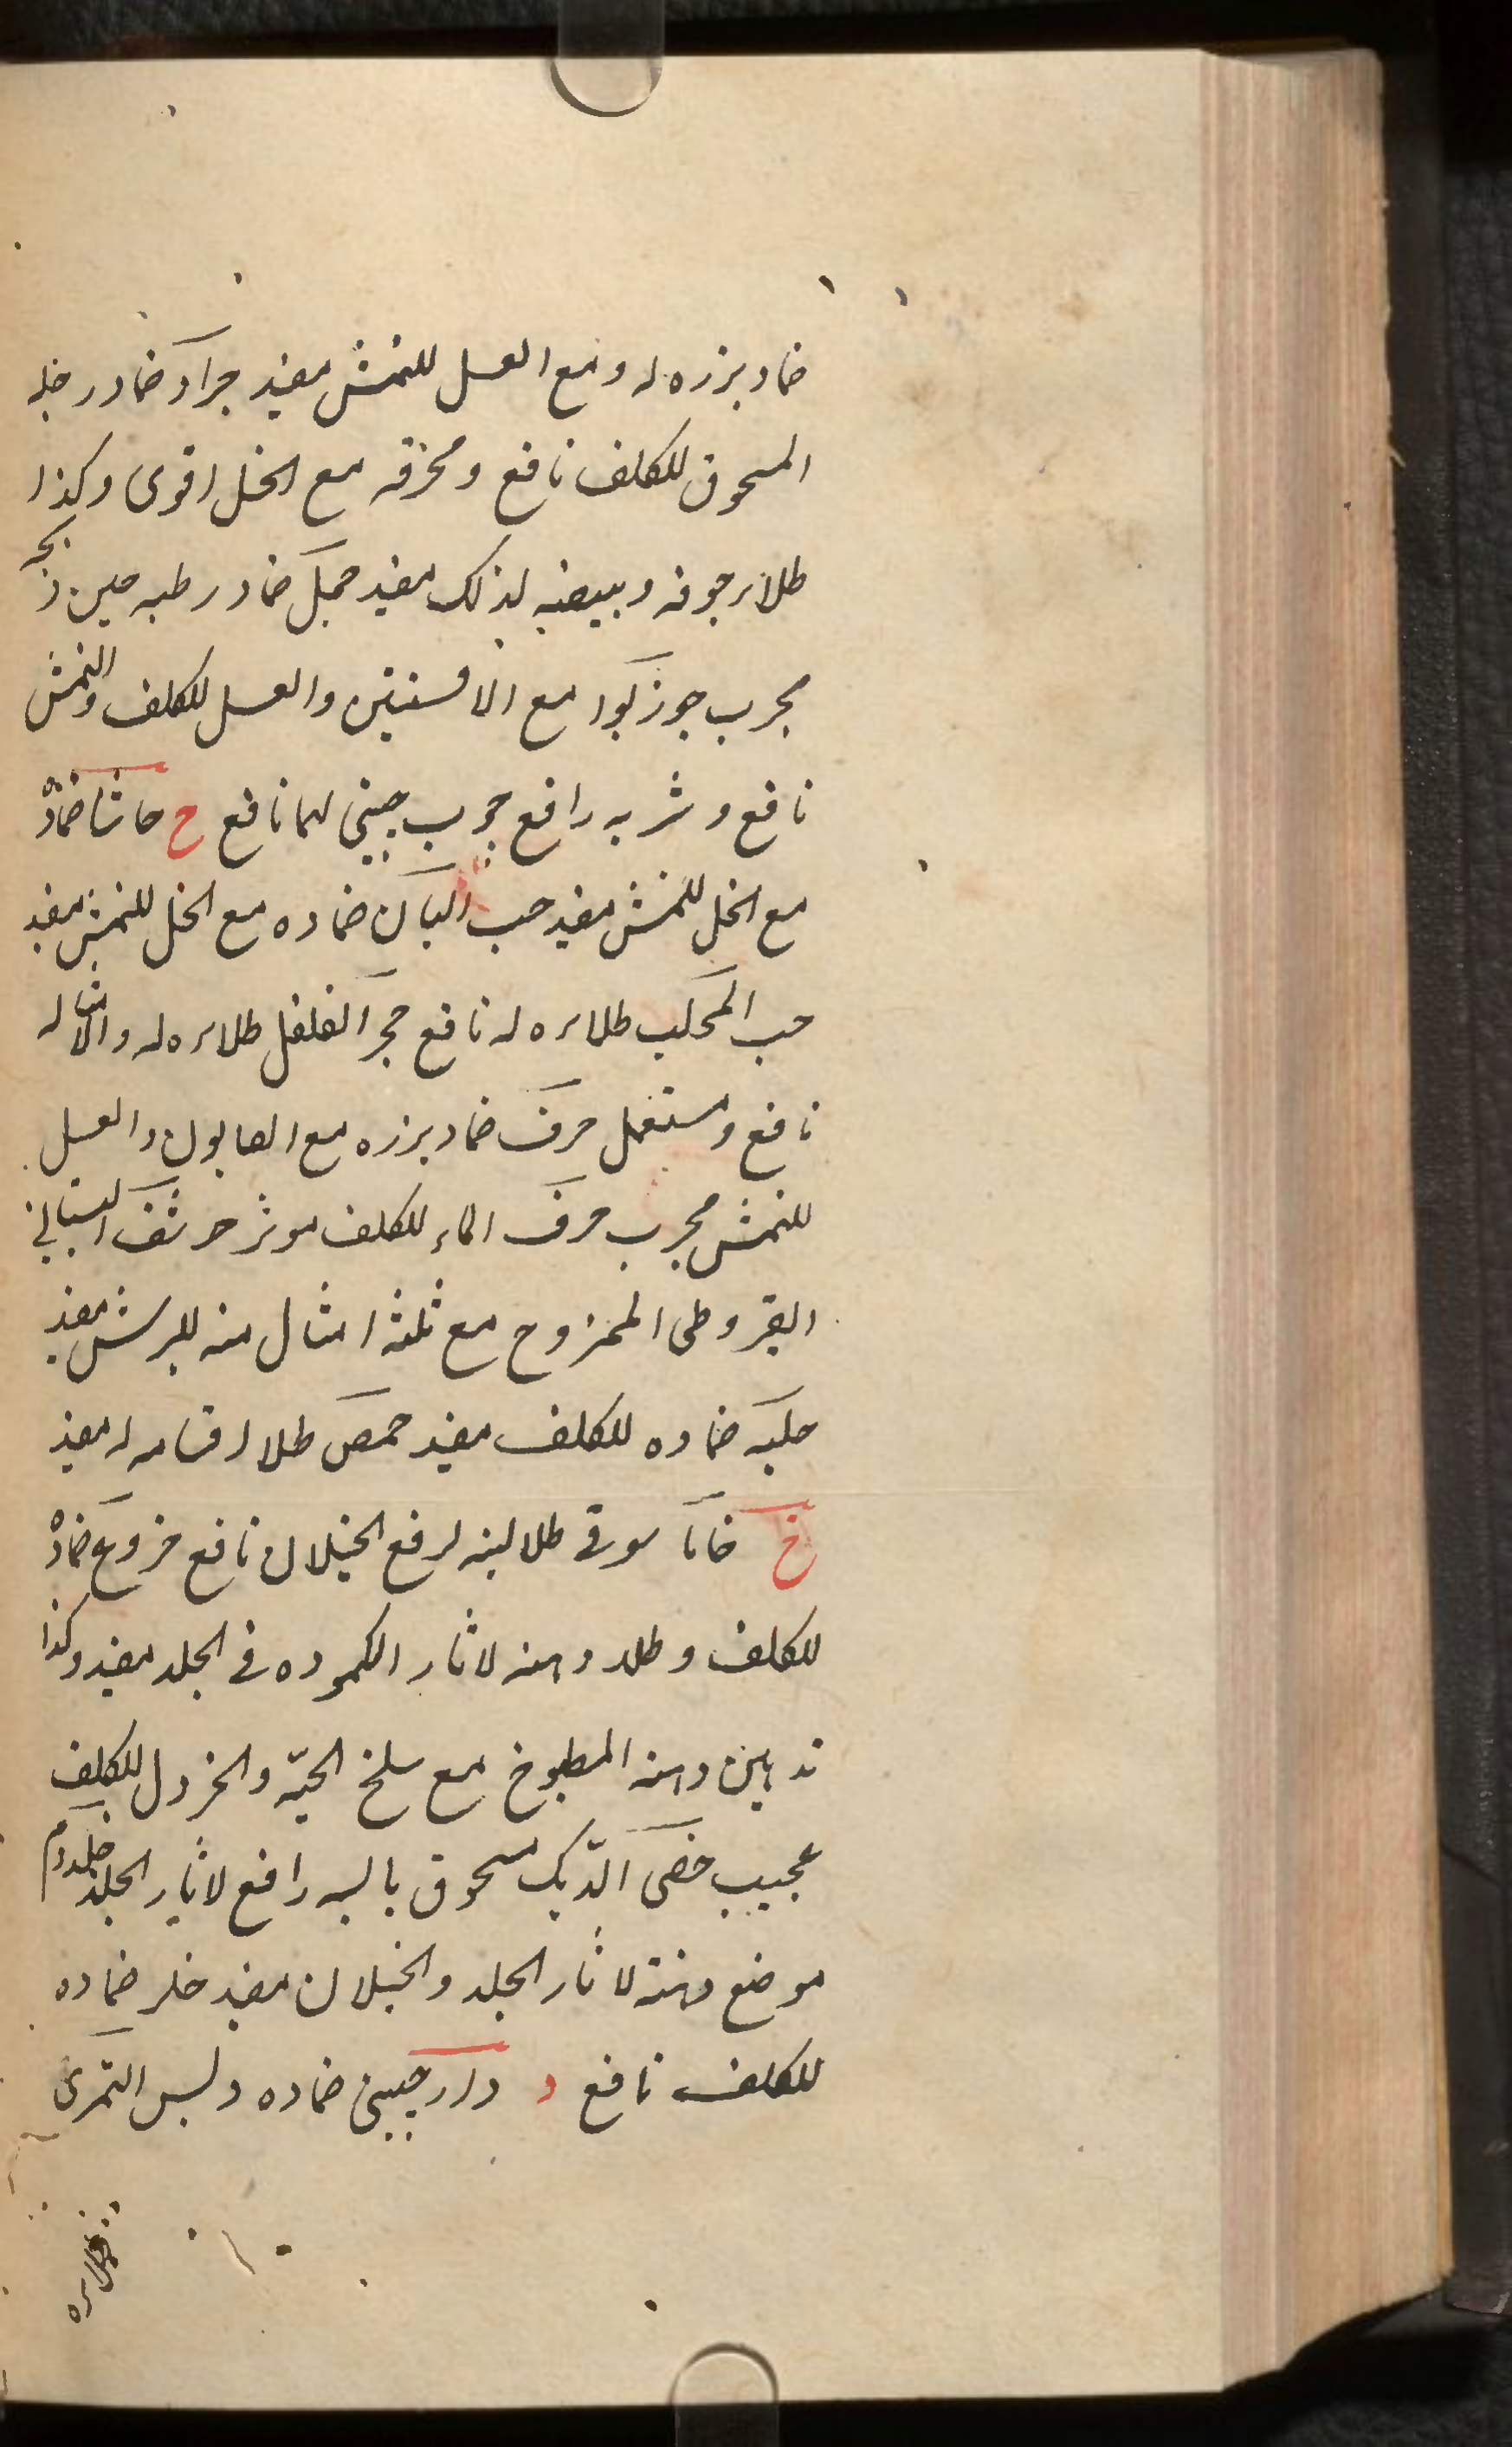 ضماد بزره له ومع العسل للنمش مفيد جراد ضماد رجله
المسحوق للكلف نافع ومحرقه مع الخل اقوى وكذا
طلاء جوفه وبيضه لذلك مفيد ضماد رطبه حين ذبحه
مجرب جوزبوا مع الافسنتين والعسل للكلف والنمش
نافع وشربه رافع مجرب لهما نافع ح حاشا ضماده
مع الخل للنمش مفيد حب البان ضماده مع الخل للنمش مفيد
حب المحلب طلاءه له نافع حجر الفلفل طلاءه له ولامثاله
نافع ومستعمل حرف ضماد بزره مع الصابون والعسل
للنمش مجرب حرف الماء للكلف موثر حرشف البستانى
القيروطى الممزوج مع ثلثة امثال منه للبرش مفيد
حلبه ضماده للكلف مفيد حمص طلا اقسامه له مفيد
خ سوقى طلا لبنه لرفع الخيلان نافع خروع ضماده
للكلف وطلاء دهنه لاثار الكموده فى الجلد مفيد وكذا
تدهين دهنه المطبوخ مع سلخ الحيّة والخردل للكلف
عجيب خصى الدّيك مسحوق رافع لاثار الجلد
موضع دهنه لاثار الجلد والخيلان مفيد ضماده
للكلف نافع د دارچينى ضماده ولبس
طلاءه